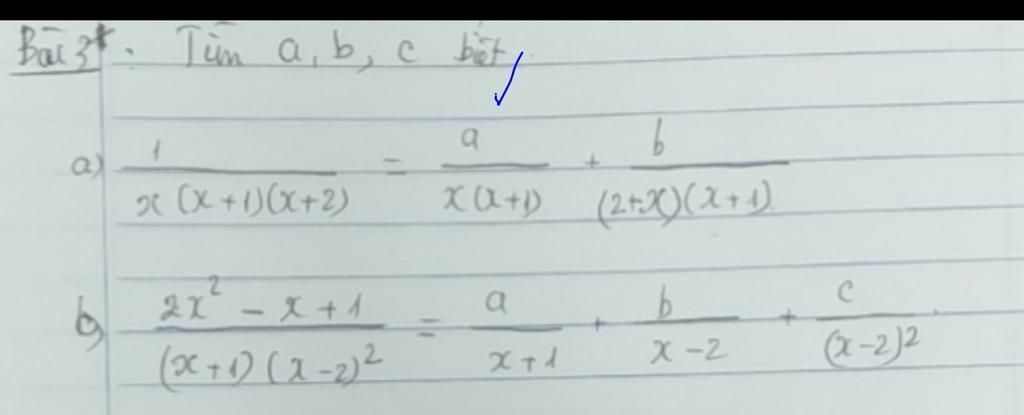 Bài 3*: Tìm a, b, c biết
a) 1/(x(x+1)(x+2)) = a/(x(x+1)) + b/((2+x)(x+1))
b) (2x² - x + 1)/((x+1)(x-2)²) = a/(x+1) + b/(x-2) + c/(x-2)².